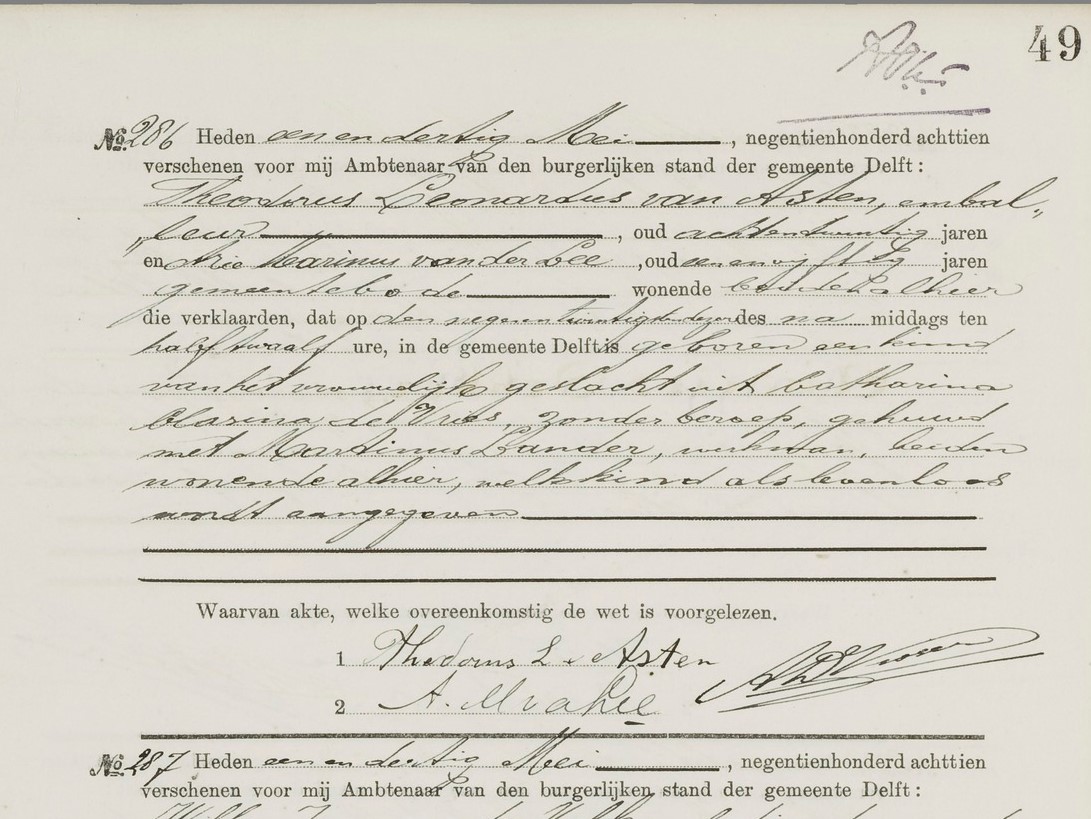 49
No. 286 Heden een en dertig Mei, negentienhonderd achttien
verschenen voor mij Ambtenaar van den burgerlijken stand der gemeente Delft:
Theodorus Leonardus van Asten, embal„
„leur, oud acht en twintig jaren
en Arie Marinus van der Lee, oud een en vijftig jaren
gemeentebode wonende beiden alhier
die verklaarden, dat op den negen en twintigsten dezer des na middags ten
half twaalf ure, in de gemeente Delft is geboren een kind
van het vrouwelijk geslacht uit Catharina
Clasina de Vries, zonder beroep, gehuwd
met Martinus Lander, werkman, beiden
wonende alhier, welk kind als levenloos
wordt aangegeven
Waarvan akte, welke overeenkomstig de wet is voorgelezen.
1 Thedorus L v Asten
2 A. M v d Lee
No. 287 Heden een en dertig Mei, negentienhonderd achttien
verschenen voor mij Ambtenaar van den burgerlijken stand der gemeente Delft: